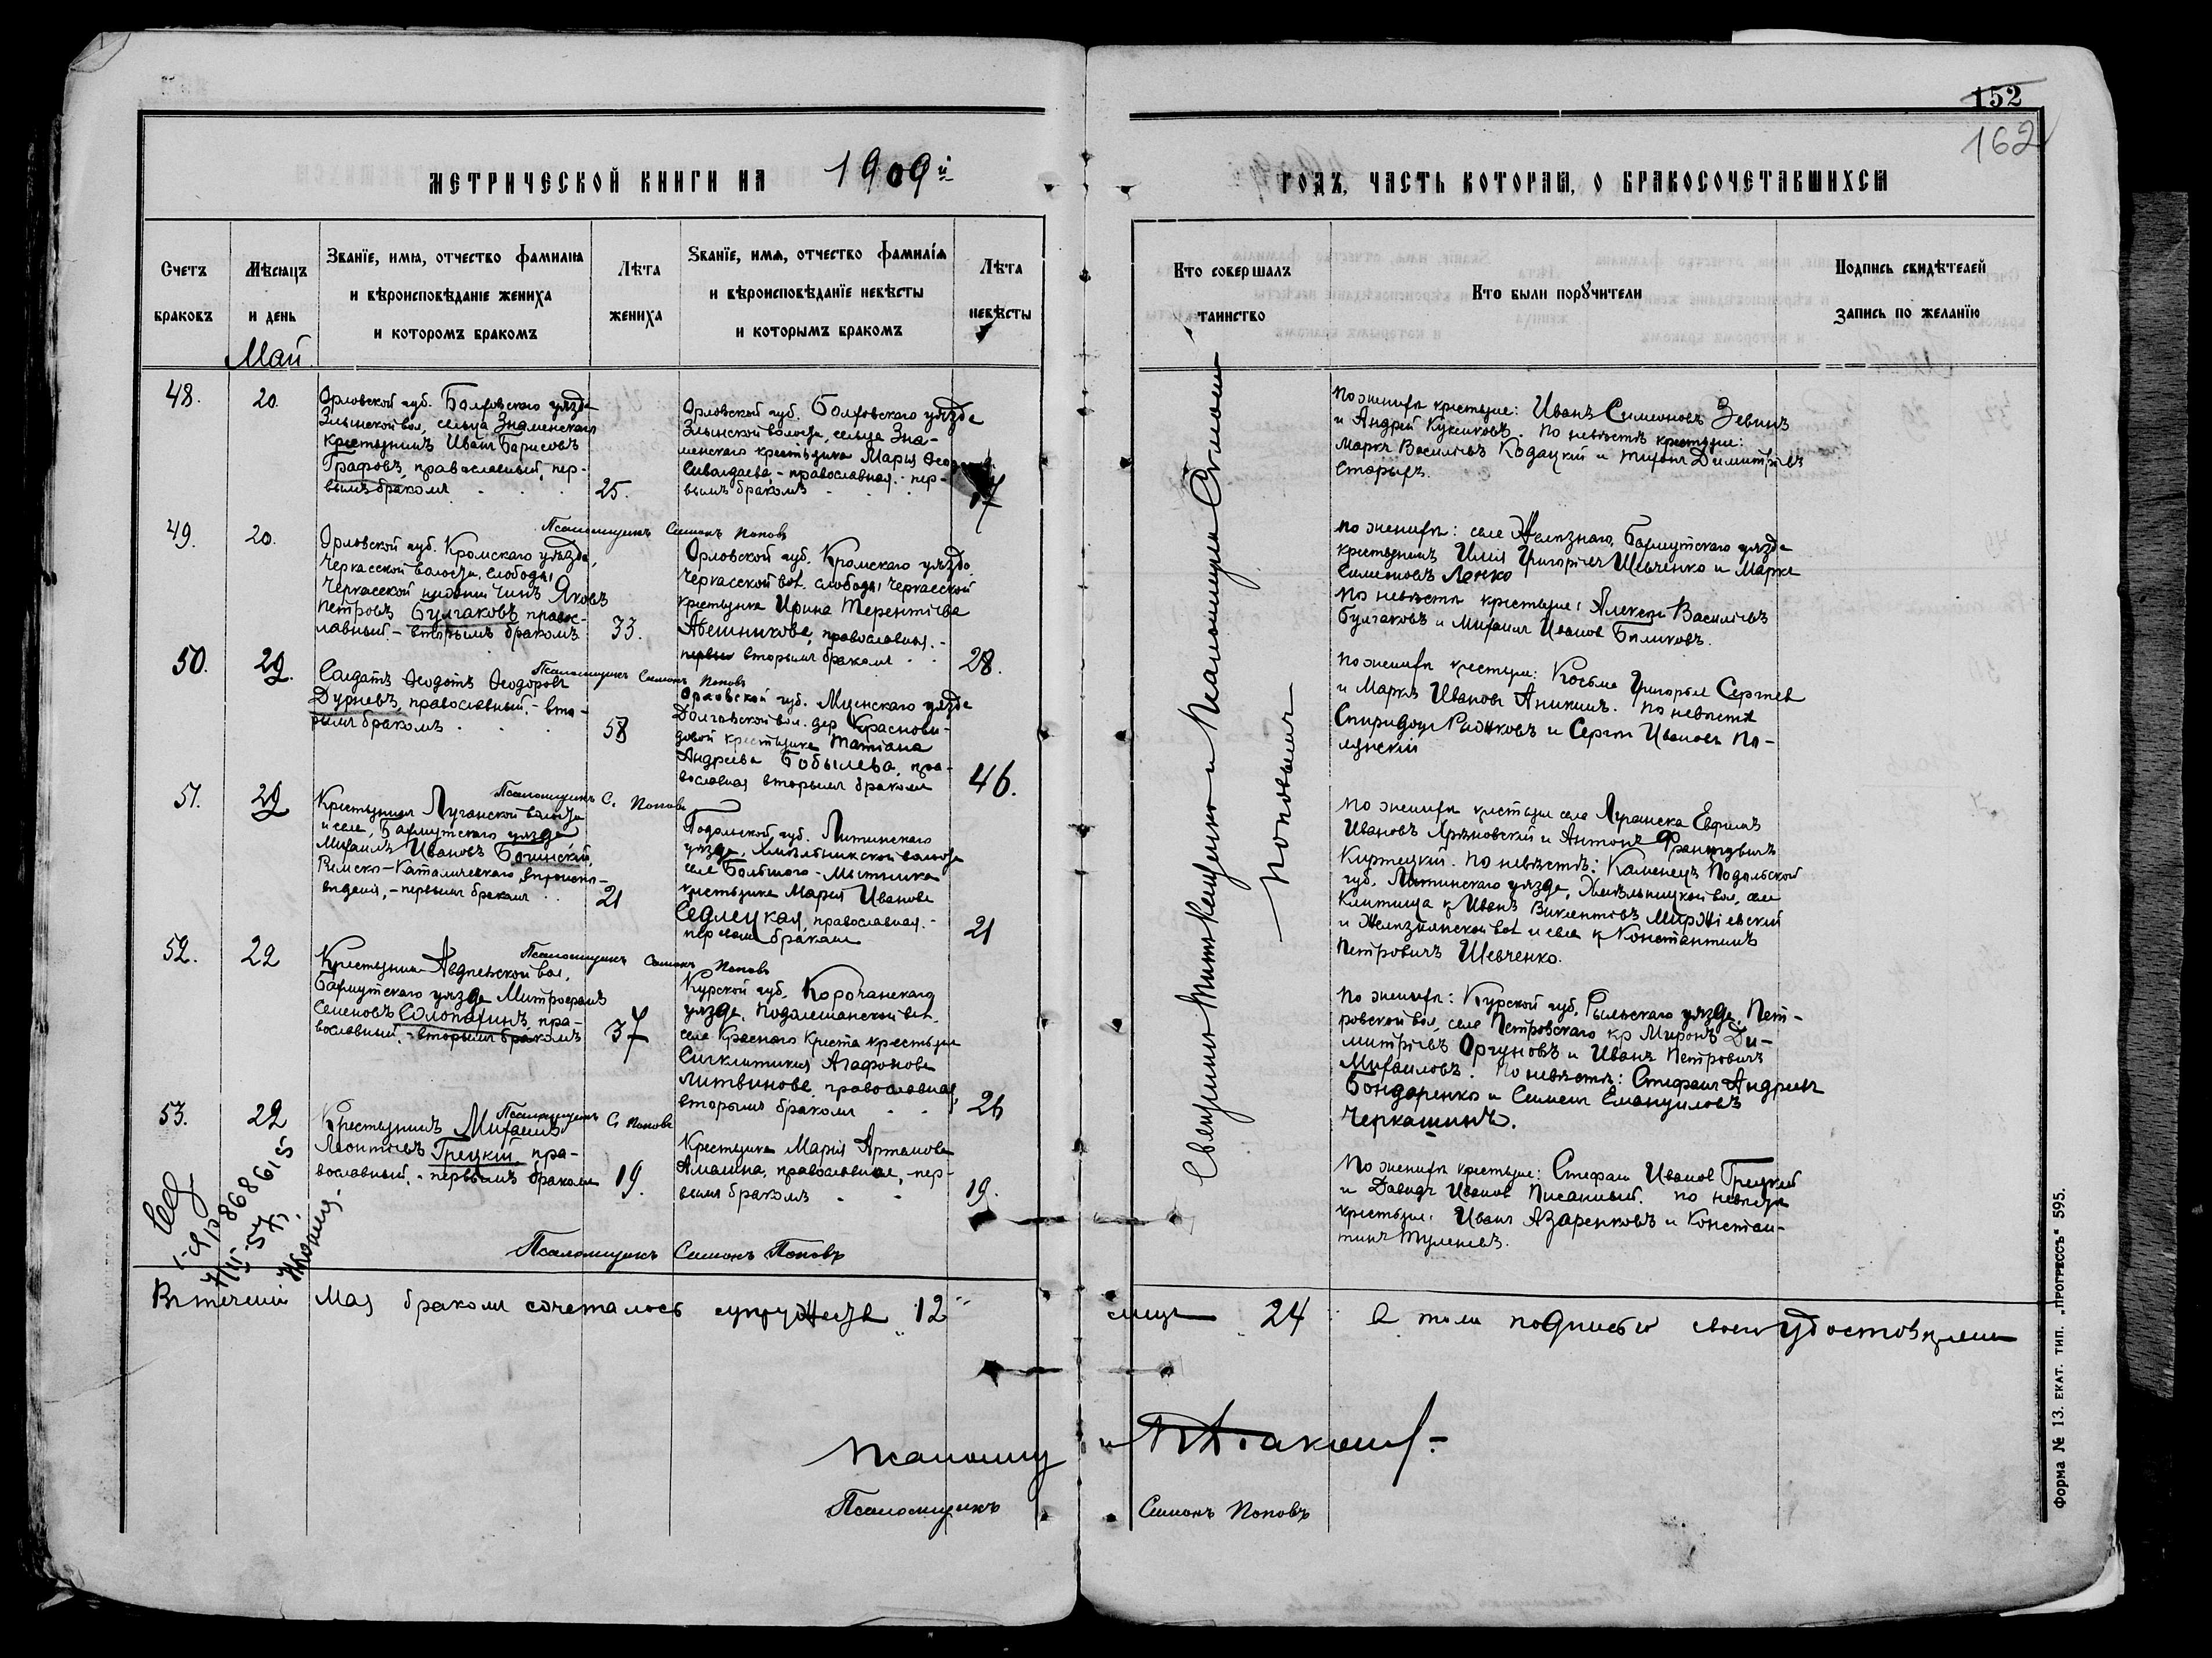 152
162
МЕТРИЧЕСКОЙ КНИГИ НА 1909й
ГОДЪ, ЧАСТЬ КОТОРАЯ, О БРАКОСОЧЕТАВШИХСЯ
Счетъ браковъ
Мѣсяцъ и день
Званїе, имя, отчество фамилия и вѣроисповѣданїе жениха и которомъ бракомъ
Лѣта жениха
Званїе, имя, отчество фамилїя и вѣроисповѣданїе невѣсты и которымъ бракомъ
Лѣта невѣсты
Кто совершалъ таинство
Кто были порꙋчители
Подпись свидѣтелей запись по желанїю
Май
48.
20.
Орловской губ. Болховского уѣзда
Злынской вол, сельца Знаменскаго
крестьянинъ Иванъ Борисовъ
Графовъ, православный, пер-
вымъ бракомъ
25.
Орловской губ. Болховского уѣзда
Злынской волости, сельца Зна-
менскаго крестьянка Марѳа
православная - пер-
вымъ бракомъ
17
По женихѣ крестьяне: Иванъ Симеоновъ Зевинъ
и Андрей Куксиковъ. По невѣстѣ крестьяне:
Маркъ Василіевъ Кодацкій и Тихонъ Димитріевъ
Псаломщикъ Симонъ Поповъ
49.
20.
Орловской губ. Кромскаго уѣзда,
Черкасской волости, слободы
Черкасской Яковъ
Петровъ Булгаковъ правос-
лавный. - вторымъ бракомъ
33.
Орловской губ. Кромскаго уѣзда,
Черкасской вол. слободы Черкасской
крестьянка Ирина Терентіева
православная. -
вторымъ бракомъ
28.
По женихѣ: села Желѣзнаго, Бахмутскаго уѣзда
крестьянинъ Илія Григоріевъ Шевченко и Марко
Симеоновъ Ленко
По невѣстѣ крестьяне: Алексѣй Василіевъ
Булгаковъ и Михаилъ Ивановъ Биликовъ.
Псаломщикъ Симонъ Поповъ
50.
29.
Солдатъ Ѳеодотъ Ѳеодоровъ
Дурневъ, православный. - вто-
рымъ бракомъ
58
Орловской губ. Мценскаго уѣзда
Долговской вол. дер. Краснови-
довой крестьянка Татіана
Андреева Бобылева, пра-
вославная вторымъ бракомъ
46.
По женихѣ крестьяне: Косьма Григорьев Сергѣев
и Маркъ Ивановъ Аникинъ. По невѣстѣ
Спиридонъ и Сергѣй Ивановъ По-
лянскій
Псаломщикъ С. Поповъ
51.
29
Крестьянинъ Луганской волости
и села, Бахмутскаго уѣзда
Михаилъ Ивановъ Богинскій,
Римско-Католическаго вѣроиспо-
вѣданія, - первымъ бракомъ
21
Подольской губ. Литинскаго
уѣзда, Хмѣльникской волости
села Большого-Мытника
крестьянка Марія Иванова
Седлецкая, православная. -
первымъ бракомъ
21
По женихѣ крестьяне села Луганска Ефимъ
Ивановъ и Антонъ Францевичъ
Куртецкій. По невѣстѣ: Каменецъ Подольской
губ. Литинскаго уѣзда, Хмѣльницкой вол, села
Клитища кр Иванъ Викентіевъ Миржіевскій
и Желѣзнянской вол. и села кр Константинъ
Петровичъ Шевченко.
Псаломщикъ Симонъ Поповъ
52.
29
Крестьянинъ Авдѣевской вол.
Бахмутскаго уѣзда Митрофанъ
Семеновъ Солопахинъ, пра-
вославный. - вторымъ бракомъ
37
Курской губ. Корочанскаго
уѣзда, Подолешанской вол.
села Краснаго Креста крестьянка
Синклитикія Агафонова
Литвинова, православная,
вторымъ бракомъ
26
По женихѣ: Курской губ, Рыльскаго уѣзда, Пет-
ровской вол, села Петровскаго кр Миронъ Ди-
митріевъ Оргуновъ и Иванъ Петровичъ
Михаиловъ. По невѣстѣ: Стефанъ Андреевъ
Бондаренко и Симеонъ Емануиловъ
Черкашинъ.
Псаломщикъ С. Поповъ
53.
29
Крестьянинъ Михаилъ
Леонтіевъ Грецкій, пра-
вославный. - первымъ бракомъ
19.
Крестьянка Марія Артамонова
Амалина, православная, пер-
вымъ бракомъ
19.
По женихѣ крестьяне: Стефанъ Ивановъ Грецкій
и Давидъ Ивановъ Писанный. По невѣстѣ
крестьяне: Иванъ Азаренковъ и Констан-
тинъ Туленевъ.
Псаломщикъ Симонъ Поповъ
Священникъ и Псаломщикъ Симонъ
Поповымъ
Въ теченіи Мая бракомъ сочеталось супружеств 12
лицъ 24 В томъ подписью своею удостовѣряемъ
Псаломщикъ Симонъ Поповъ
Форма № 13. ЕКАТ. ТИП. „ПРОГРЕССЪ“ 595.